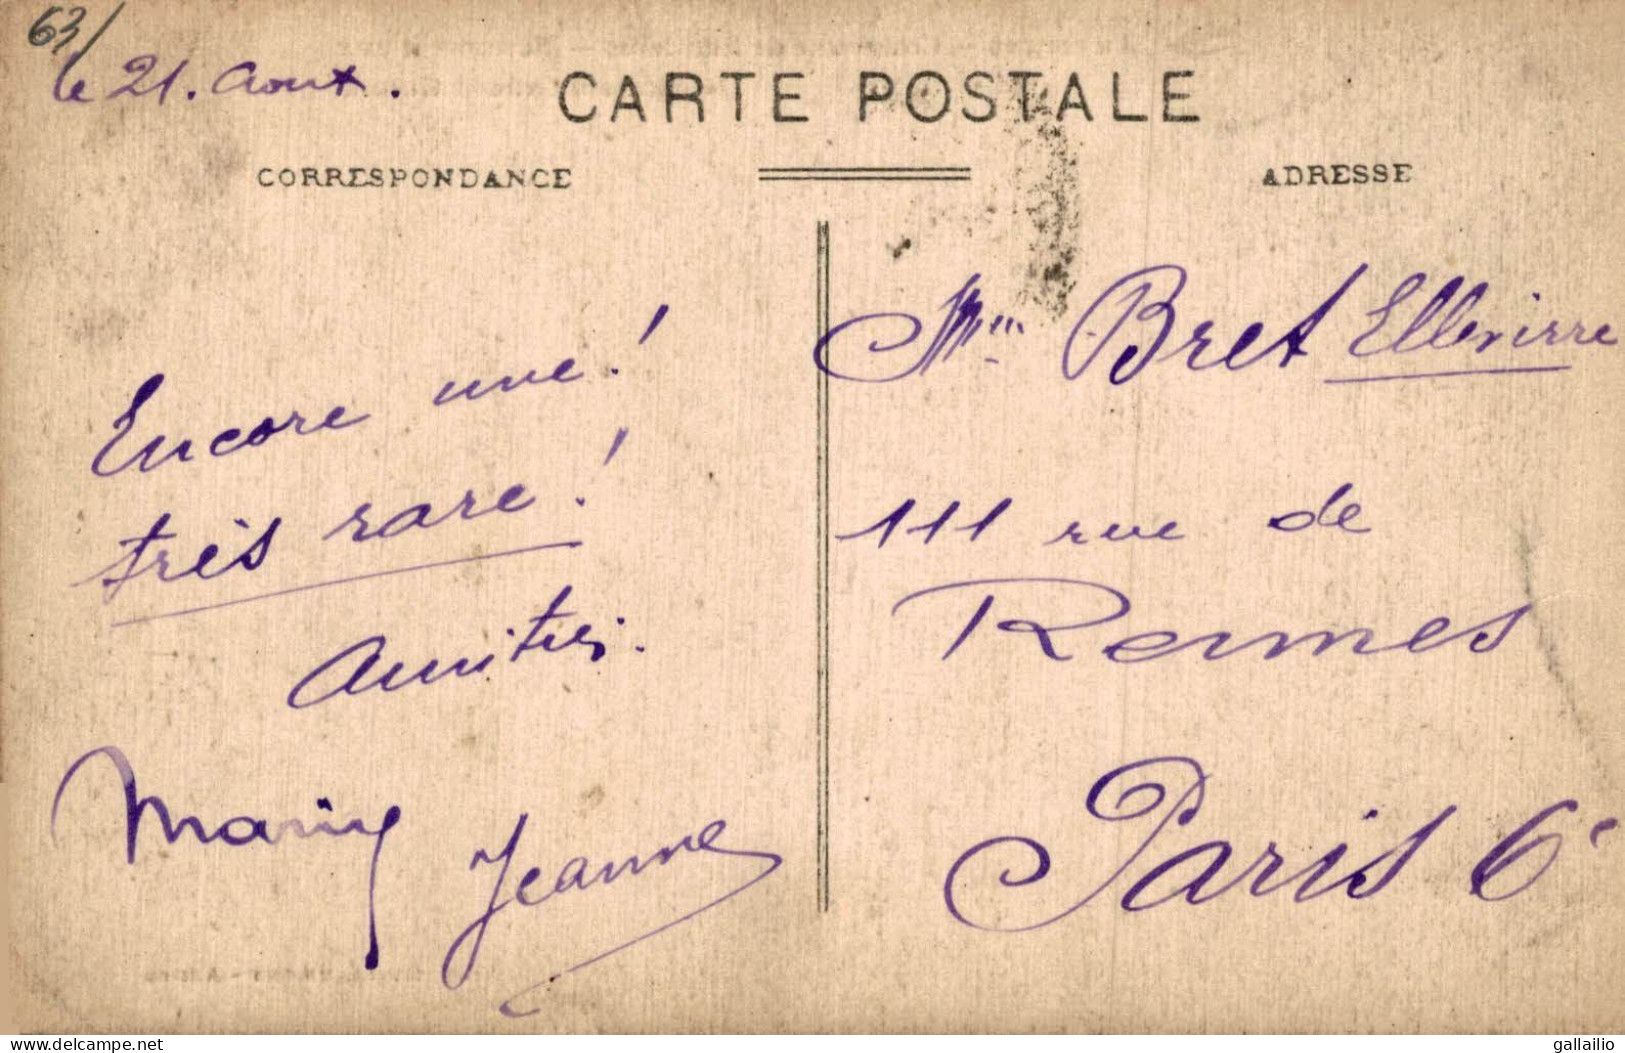 63/
le 21. Aout.
CARTE POSTALE
CORRESPONDANCE
ADRESSE
Encore une!
très rare!
Amitiés.
Jeanne
Mme Bret
111 rue de
Rennes
Paris 6e
delcampe.net
gallailio